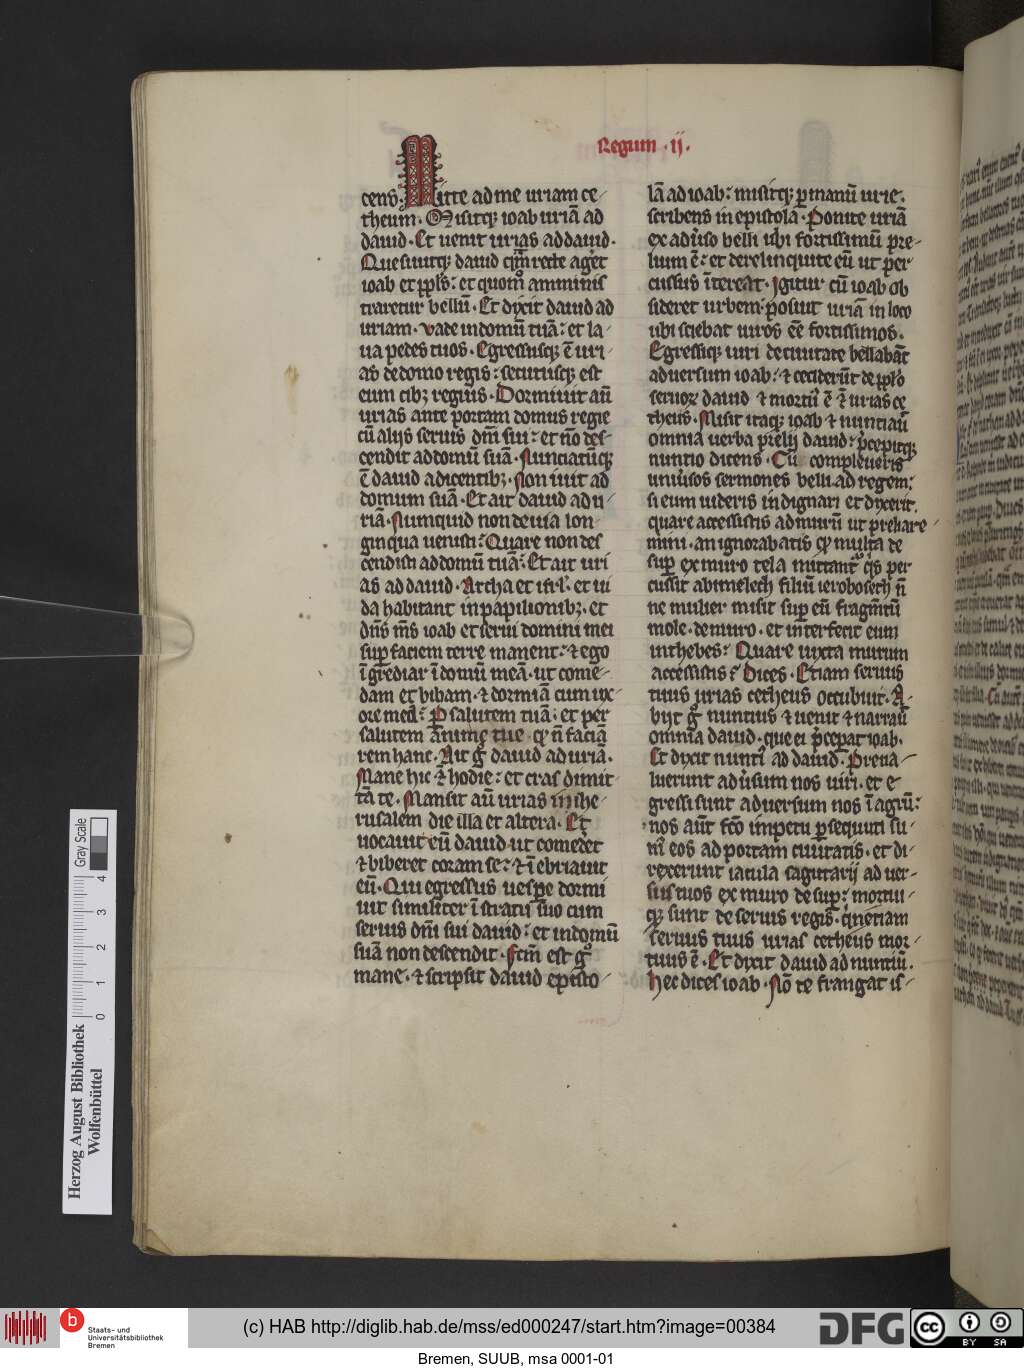 Regum · ij ·
cens. Mitte ad me uriam ce-
theum. Misitq; ioab uriā ad
dauid. Et uenit urias ad dauid.
Quesiuitq; dauid qm̄ recte aget
ioab et ppl's: et quom̊ aminis
traretur bellū. Et dyxit dauid ad
uriam. vade in domū tuā: et la-
ua pedes tuos. Egressusq; ē uri-
as de domo regis: secutusq; est
eum cib; regius. Dormiuit aū
urias ante portam domus regie
cū alijs seruis dn̄i sui: et nō des-
cendit ad domū suā. Nunciatūq;
ē dauid a dicentib;. Non iuit ad
domum suā. Et ait dauid ad u-
riā. Numquid non de uia lon-
ginqua uenisti: Quare non des
cendisti ad domū tuā: Et ait uri
as ad dauid. Archa et isrl'. et iu
da habitant in papilionib;. et
dn̄s m̄s ioab et serui domini mei
sup faciem terre manent: et ego
īgrediar ī domū meā. ut come-
dam et bibam. et dormiā cum ux-
ore mea: P salutem tuā: et per
salutem anime tue. qđ n̄ faciā
rem hanc. Ait g̊ dauid ad uriā.
Mane hic et hodie: et cras dimit-
tā te. Mansit aū urias in ihe-
rusalem die illa et altera. Et
uocauit eū dauid ut comedet
et biberet coram se: et īebriauit
eū. Qui egressus uespe dormi
uit similiter ī stratu suo cum
seruis dn̄i sui dauid: et in domū
suā non descendit. Fc̄m est g̊
mane. et scripsit dauid episto-
lā ad ioab: misitq; p manū urie.
scribens in epistola. Ponite uriā
ex aduso belli ubi fortissimū pre-
lium ē: et derelinquite eū ut per
cussus ītereat. Igitur cū ioab ob
sideret urbem: posuit uriā in loco
ubi sciebat uiros eē fortissimos.
Egressiq; uiri de ciuitate bellabāt
aduersum ioab: et ceciderūt de pplo
seruor; dauid et mortu' ē et urias ce
theus. Misit itaq; ioab et nuntiau
omnia uerba prelij dauid: p̄cepitq;
nuntio dicens. Cū compleueris
uniūsos sermones belli ad regem:
si eum uideris indignari et dyxerit.
quare accessistis ad murū ut preliare-
mini. an ignorabatis qđ multa de
sup ex muro tela mittant'. q's per
cussit abimelech filiū ierobosech: n̄
ne mulier misit sup eū fragm̄tū
mole. de muro. et interfecit eum
in thebes: Quare iuxta murum
accessistis: Dices. Etiam seruus
tuus urias cetheus occubuit. A-
bijt g̊ nuntius et uenit et narrau
omnia dauid. que ei p̄ceperat ioab.
Et dyxit nunti' ad dauid. Preua-
luerunt adūsum nos uiri. et e-
gressi sunt aduersum nos ī agrū:
nos aūt fc̄o impetu psequuti su-
m' eos ad portam ciuitatis. et di-
rexerunt iacula sagittarij ad uer-
sus tuos ex muro desup: mortui-
q; sunt de seruis regis. quinetiam
seruus tuus urias cetheus mor-
tuus ē. Et dyxit dauid ad nuntiū.
Hec dices ioab. Nō te frangat is-
Herzog August Bibliothek
Wolfenbüttel
0 1 2 3 4
Gray Scale
b
Staats- und
Universitätsbibliothek
Bremen
(c) HAB http://diglib.hab.de/mss/ed000247/start.htm?image=00384
DFG
cc BY SA
Bremen, SUUB, msa 0001-01